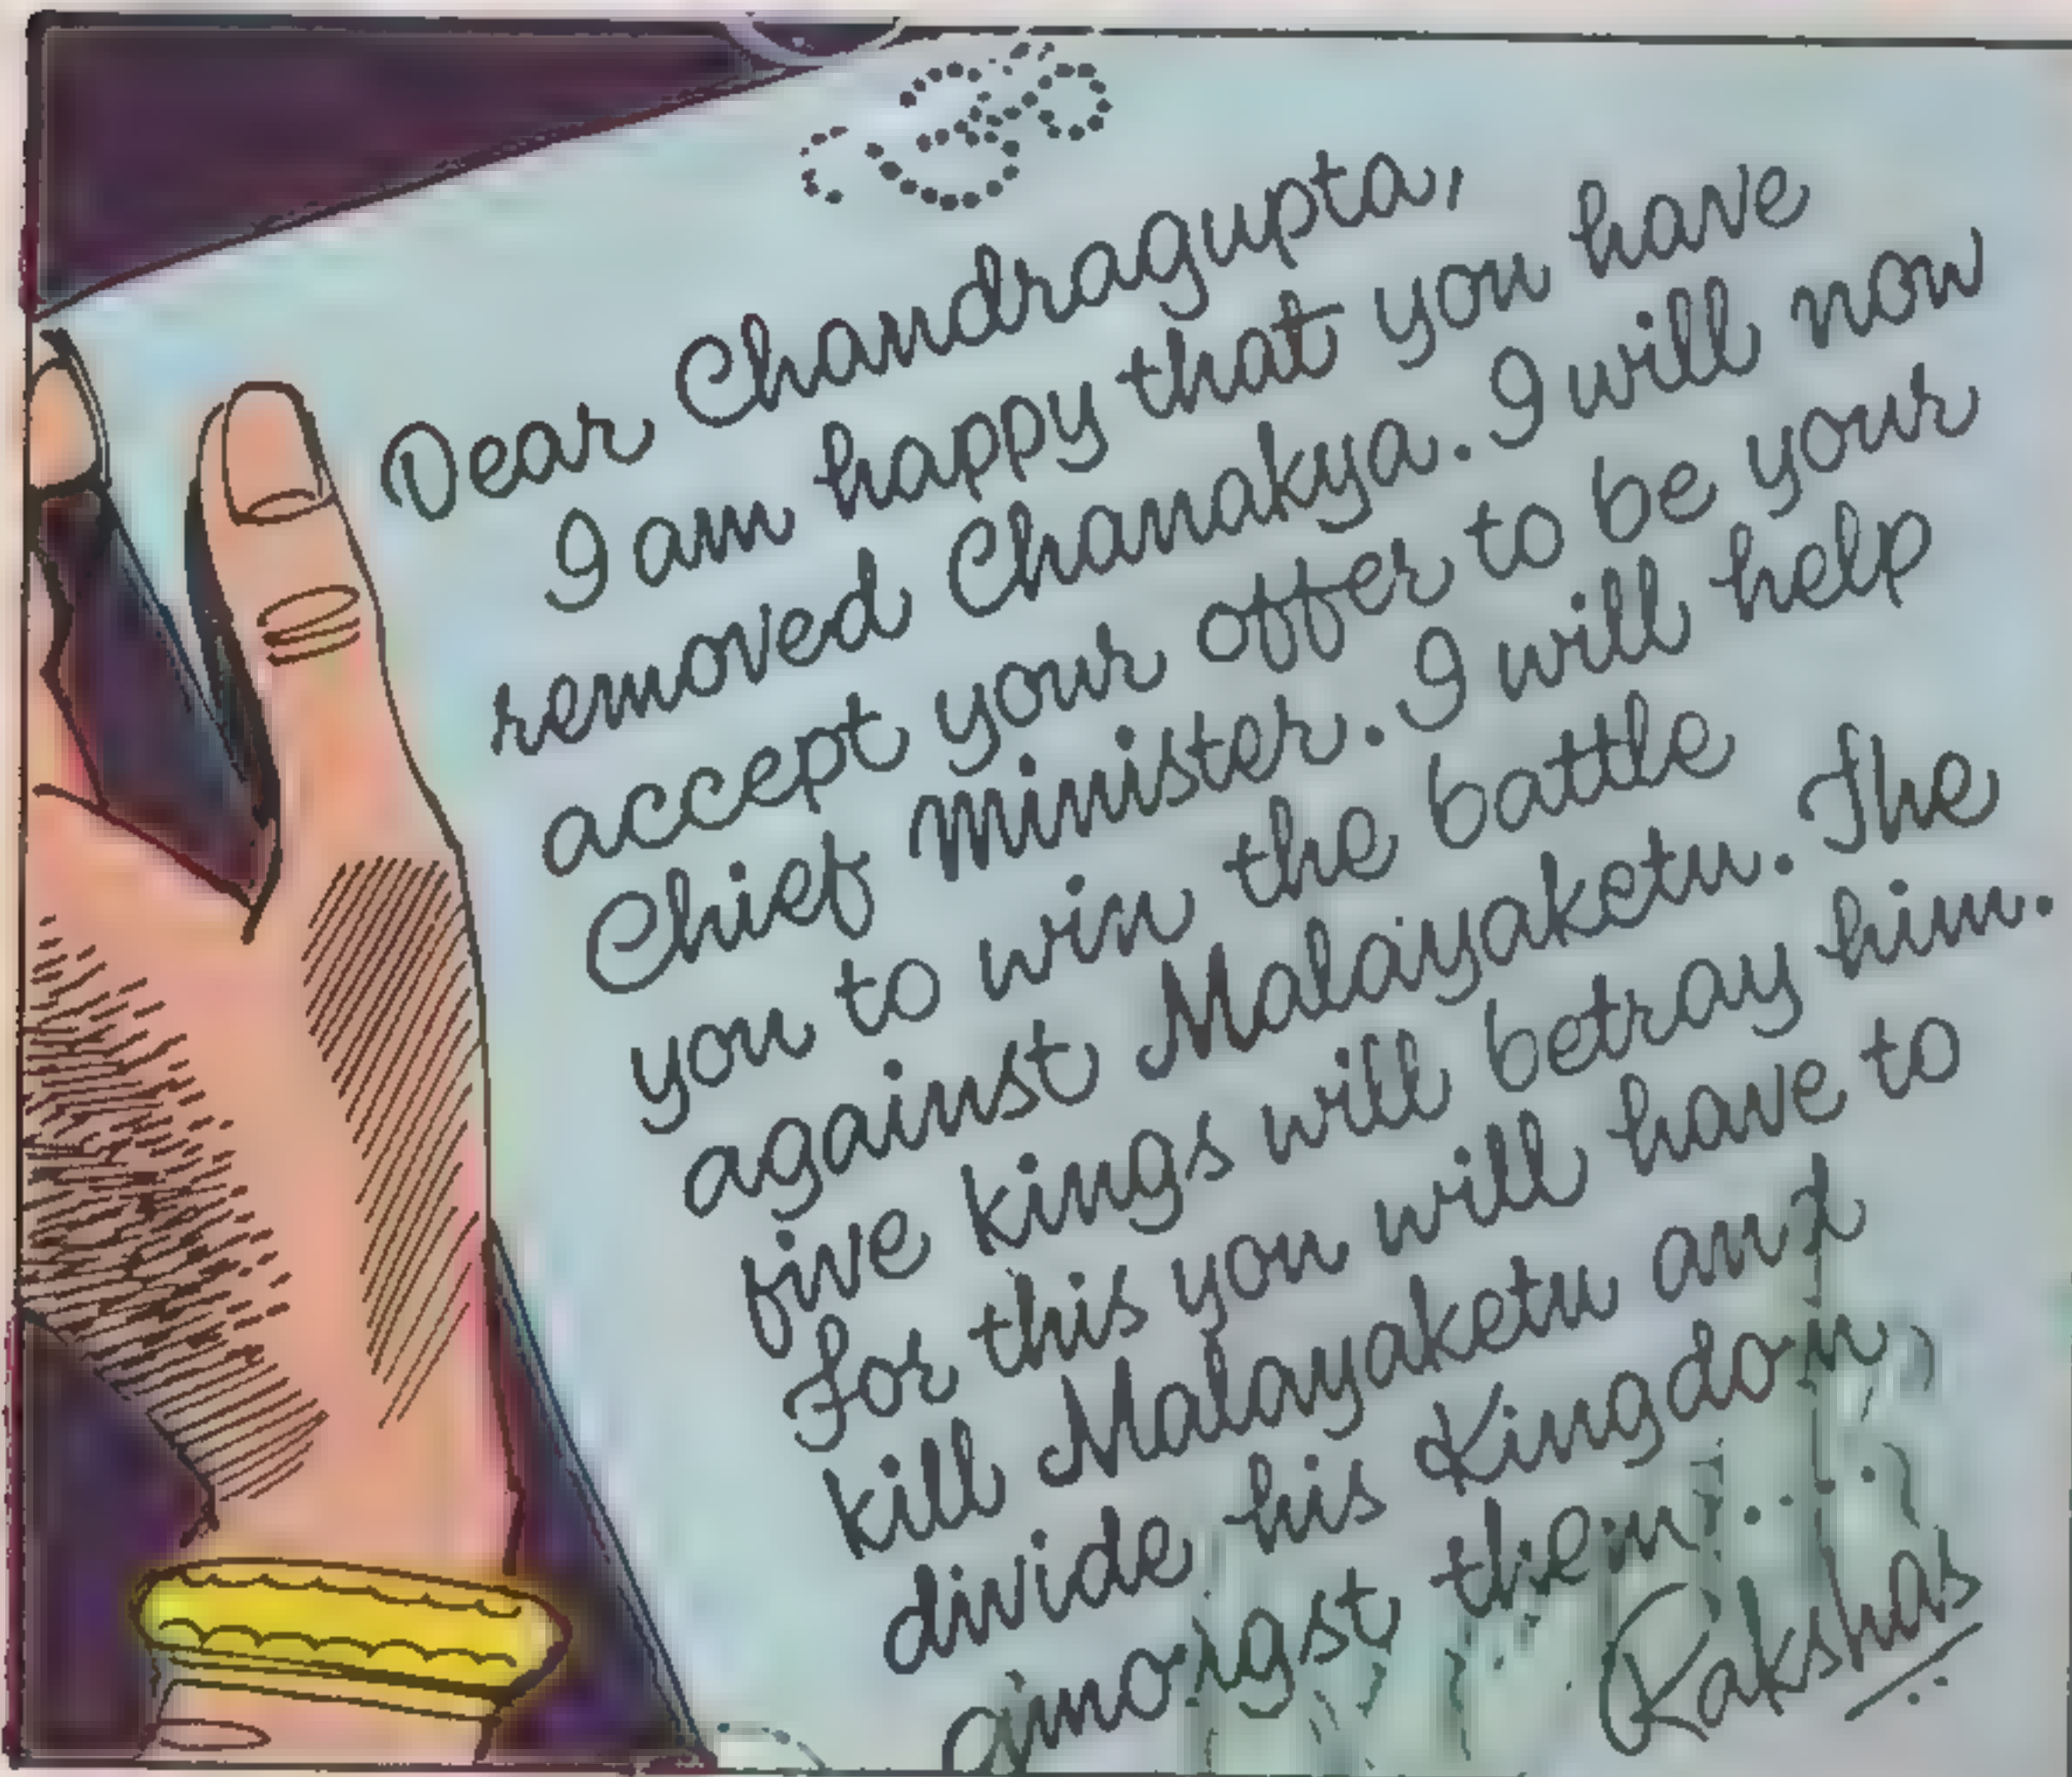 Dear Chandragupta,
I am happy that you have
removed Chanakya. I will now
accept your offer to be your
Chief Minister. I will help
you to win the battle
against Malayaketu. The
five kings will betray him.
For this you will have to
kill Malayaketu and
divide his Kingdom
amongst them....
Rakshas